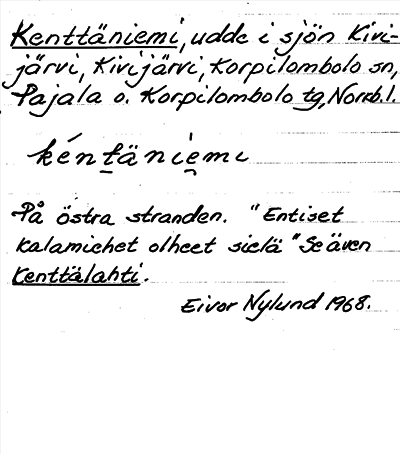 Kenttäniemi, udde i sjön Kivi-
järvi, Kivijärvi, Korpilombolo sn,
Pajala o. Korpilombolo tg, Norrb. l.
kéntäniemi
På östra stranden. "Entiset
kalamiehet olheet sielä" Se även
Kenttälahti.
Eivor Nylund 1968.